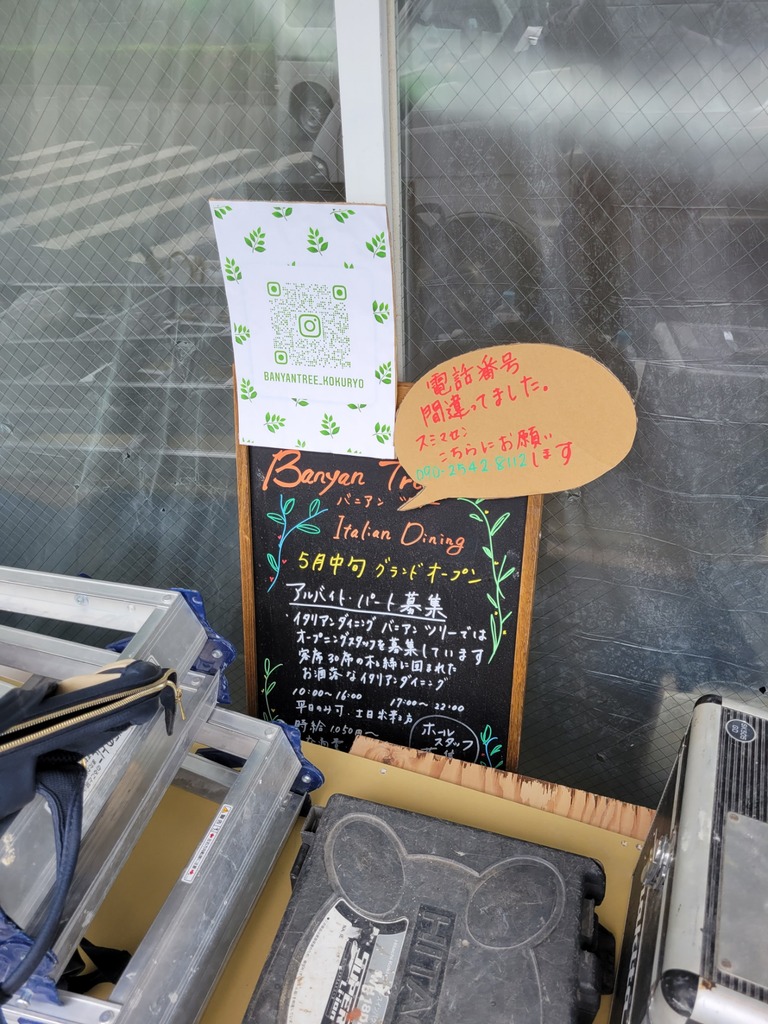 BANYANTREE_KOKURYO
電話番号
間違ってました。
スミマセン
こちらにお願い
します
090-2542-8112
Banyan
バニアン ツリー
Italian Dining
5月中旬 グランドオープン
アルバイト・パート募集
イタリアンダイニング バニアンツリーでは
オープニングスタッフを募集しています
客席30席の木と緑に囲まれた
お洒落なイタリアンダイニング
10:00〜16:00 17:00〜22:00
平日のみ可、土日
時給 1050円〜
ホール
スタッフ